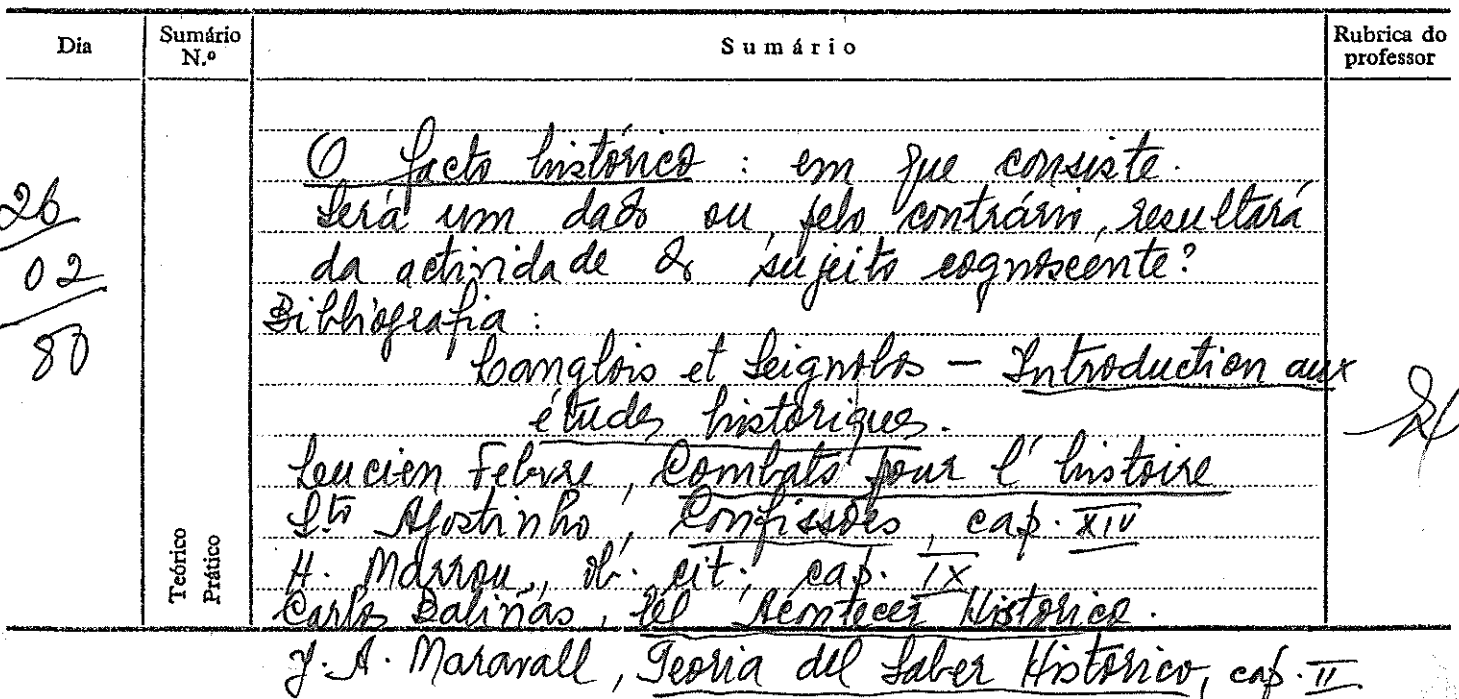 Dia
Sumário N.º
Sumário
Rubrica do professor
26
02
80
O facto histórico : em que consiste.
Será um dado ou, pelo contrário, resultará
da actividade do sujeito cognoscente?
Bibliografia :
Langlois et Seignobos — Introduction aux
études historiques.
Lucien Febvre, Combats pour l'histoire
Sto Agostinho, Confissões, cap. XIV
H. Marrou, ob. cit., cap. IX
Carlos Baliñas, El Acontecer Historico.
J. A. Maravall, Teoria del Saber Historico, cap. II
Teórico
Prático